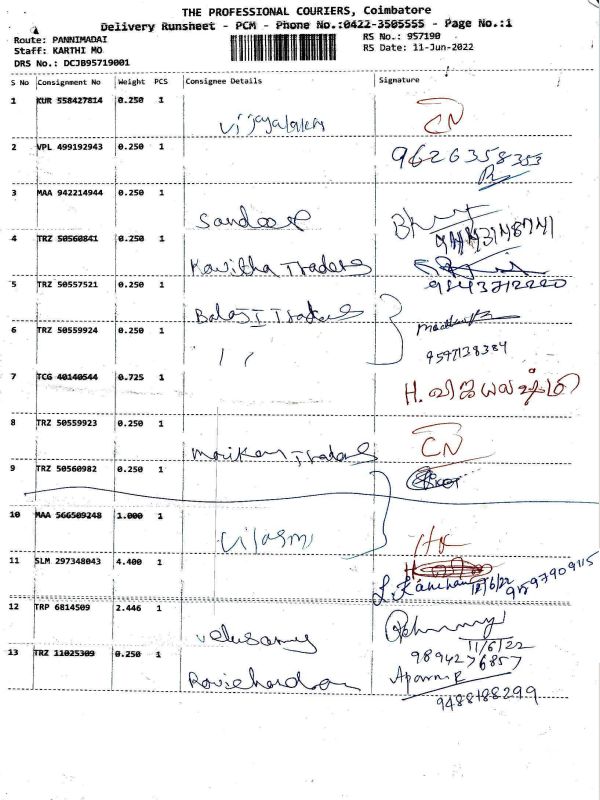 THE PROFESSIONAL COURIERS, Coimbatore
Delivery Runsheet - PCM - Phone No.:0422-3505555 - Page No.:1
Route: PANNIMADAI
RS No.: 957190
Staff: KARTHI MO
RS Date: 11-Jun-2022
DRS No.: DCJB95719001
S No Consignment No Weight PCS Consignee Details Signature
1 KUR 558427814 0.250 1
Vijayalakshmi CN
2 VPL 499192943 0.250 1
9626358353
3 MAA 942214944 0.250 1
Sandeep
4 TRZ 50560841 0.250 1
Kavitha Traders
5 TRZ 50557521 0.250 1
9843712220
Balaji Traders
6 TRZ 50559924 0.250 1
9597138384
7 TCG 40140544 0.725 1
H. விஜயலஷ்மி
8 TRZ 50559923 0.250 1
Traders CN
9 TRZ 50560982 0.250 1
10 MAA 566509248 1.000 1
11 SLM 297348043 4.400 1
9597909115
12 TRP 6814509 2.446 1
Velusamy
11/6/22
9894276857
13 TRZ 11025309 0.250 1
Ravichandran
9488188299